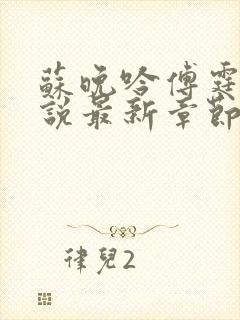 蘇晚吟傅霆
說最新章節
律兒2